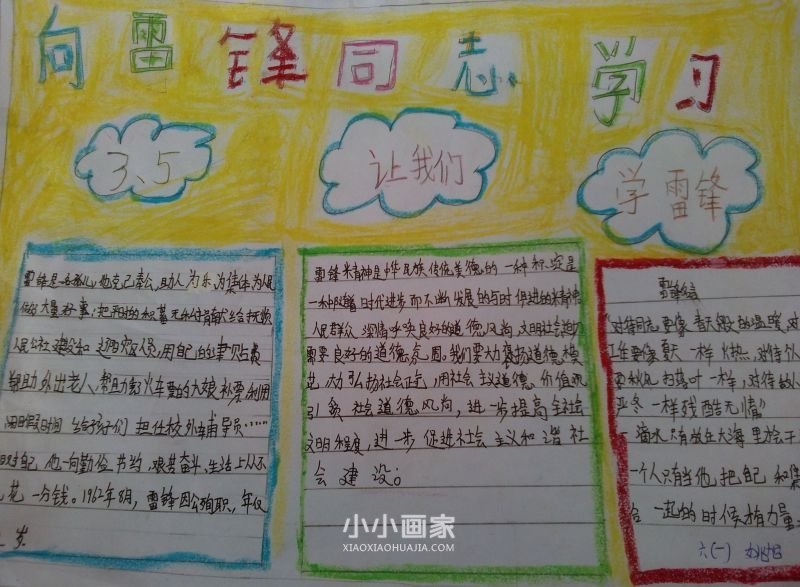 向雷锋同志学习
3、5
让我们
学雷锋
雷锋是 他克己奉公,助人为乐为集体为人民
做 大量好事:把 积蓄 捐献给抚顺
人民公社建设和辽阳灾区人民,用自己的津贴费
帮助外出老人、帮助 火车 的大娘补票利用
闲暇时间 给孩子们 担任校外辅导员……
对自己 他一向勤俭节约,艰苦奋斗、生活上从不
花一分钱。1962年8月,雷锋因公殉职,年仅
岁
雷锋精神是中华民族传统美德的一种 是
一种 时代进步而不断发展的与时俱进的精神
人民群众 深情呼唤良好的道德风尚,文明社会
需要良好的道德 。我们要大力 道德模
范 大力弘扬社会正 ,用社会主义道德价值观
引领社会道德风尚,进一步提高全社会
文明程度,进一步促进社会主义和谐社
会建设。
雷锋
对待同志要像春天般的温暖,对
工作要像夏天一样火热,对待个人
秋风扫落叶一样,对待敌人
严冬一样残酷无情"
一滴水只有放在大海里
一个人只有当他把自己和集
合一起的时候 有力量
六(一)
小小画家
XIAOXIAOHUAJIA.COM